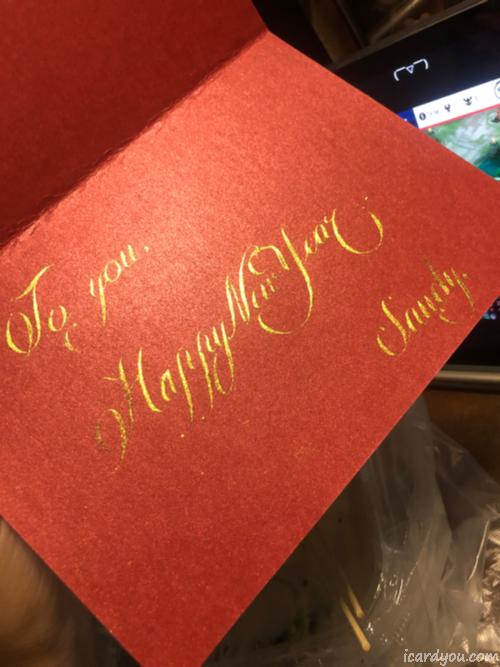 To you,
Happy New Year.
Sandy.
icardyou.com